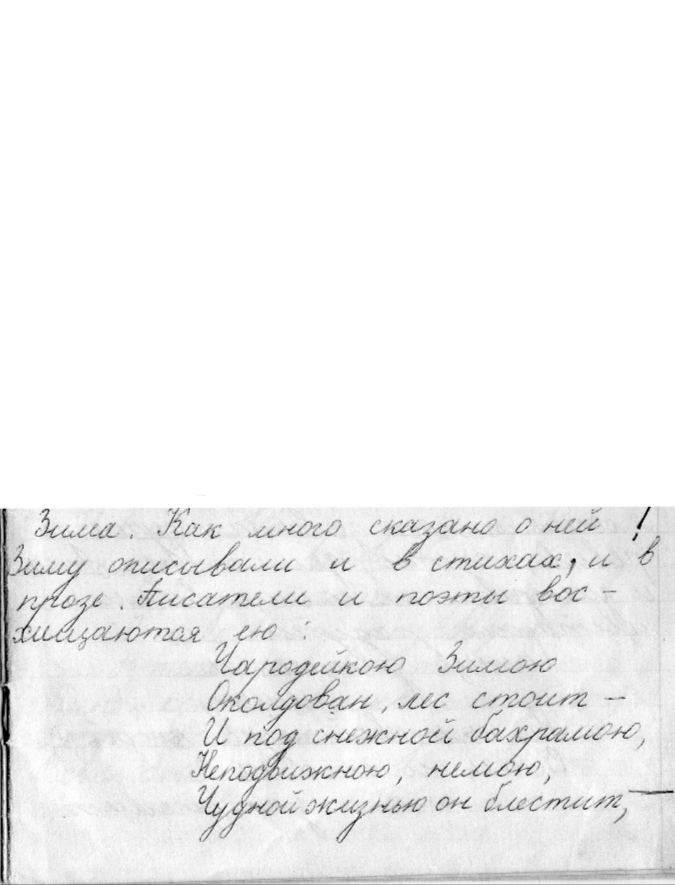 Зима. Как много сказано о ней!
Зиму описывали и в стихах, и в
прозе. Писатели и поэты вос-
хищаются ею:
Чародейкою Зимою
Околдован, лес стоит –
И под снежной бахрамою,
Неподвижною, немою,
Чудной жизнью он блестит, —